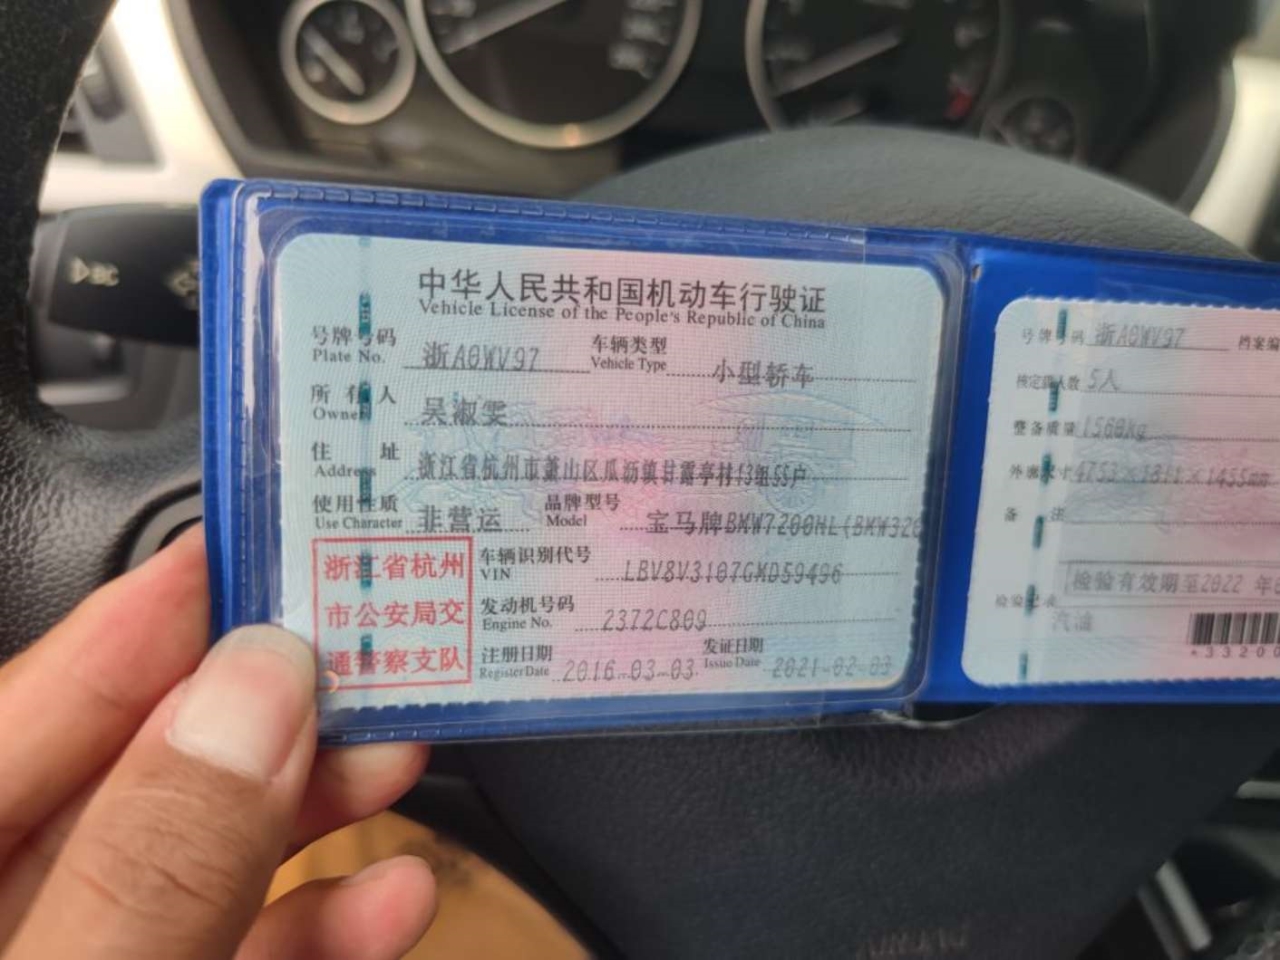 中华人民共和国机动车行驶证
Vehicle License of the People's Republic of China
号牌号码 浙A0WV97 车辆类型 小型轿车
Plate No. Vehicle Type
所有人 吴淑雯
Owner
住址 浙江省杭州市萧山区瓜沥镇甘露亭村13组55户
Address
使用性质 非营运 品牌型号 宝马牌BMW7200HL(BMW320
Use Character Model
浙江省杭州
市公安局交
通警察支队
车辆识别代号 LBV8V3107GMD59496
VIN
发动机号码 2372C809
Engine No.
注册日期 2016-03-03 发证日期 2021-02-03
Register Date Issue Date
号牌号码 浙A0WV97 档案编
核定载人数 5人
整备质量 1560kg
外廓尺寸 4753×1811×1455mm
备注
检验有效期至2022 年
检验记录
汽油
*33200
BC